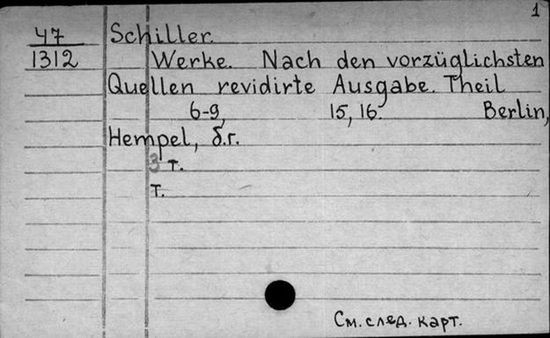 1
47 Schiller.
1312 Werke. Nach den vorzüglichsten
Quellen revidirte Ausgabe. Theil
6-9, 15, 16. Berlin,
Hempel, б.г.
3 т.
т.
См. след. карт.